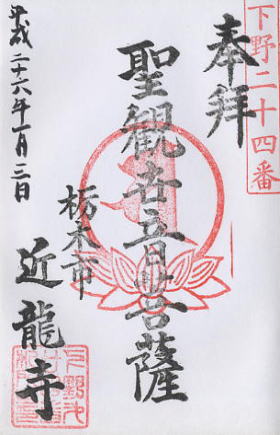 下野二十四番
奉拝
聖観世音菩薩
栃木市
近龍寺
平成二十六年一月三日